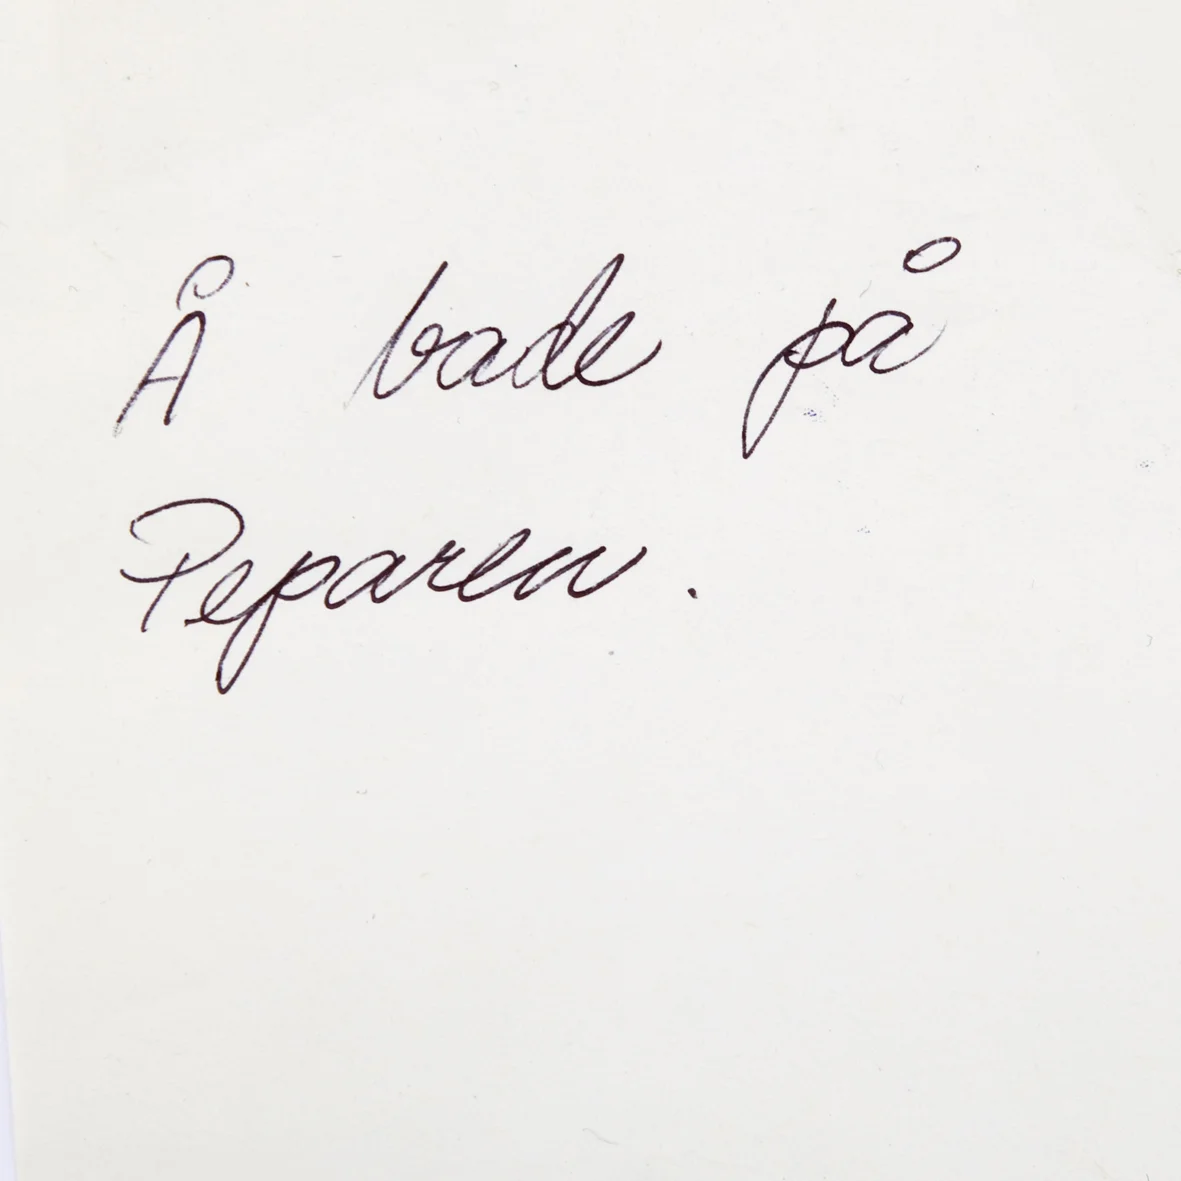 Å bade på
Peparen.